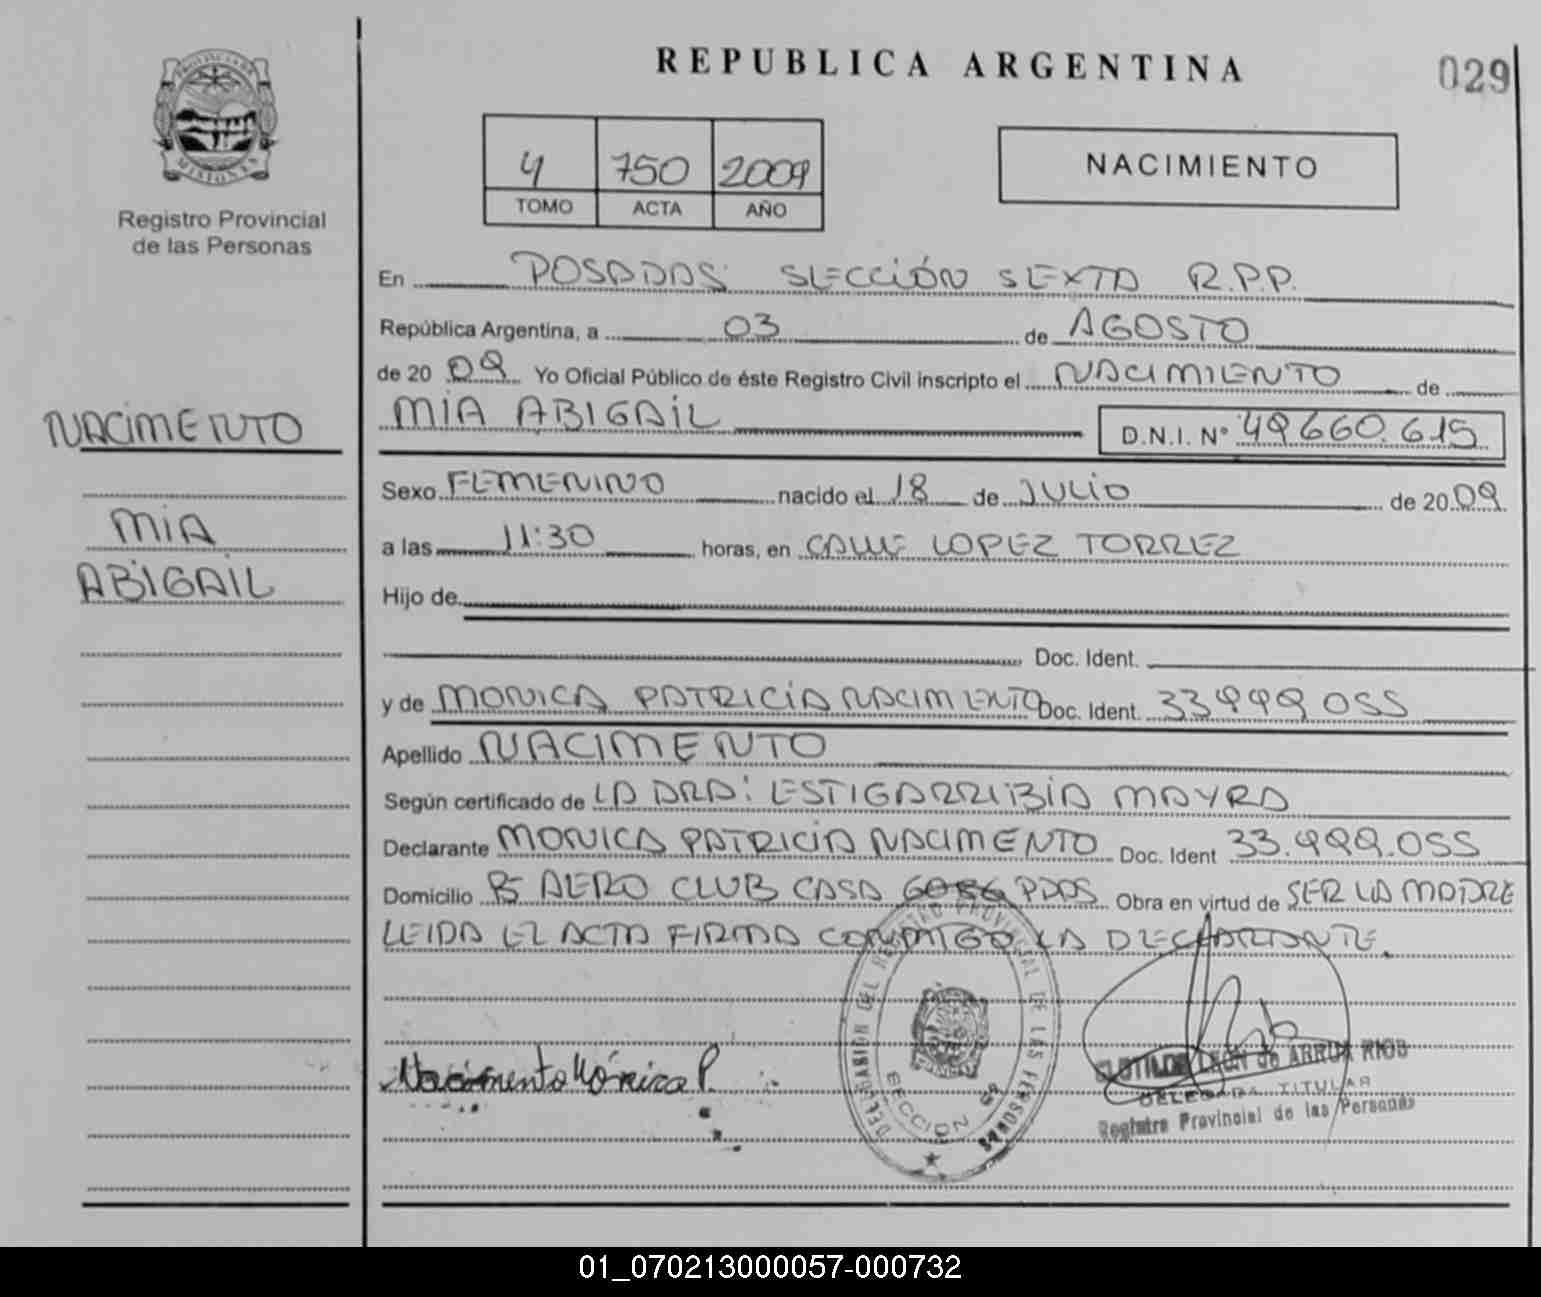 REPUBLICA ARGENTINA
029
PROVINCIA DE MISIONES
Registro Provincial
de las Personas
4 750 2009
TOMO ACTA AÑO
NACIMIENTO
En POSADAS SECCIÓN SEXTA R.P.P.
República Argentina, a 03 de AGOSTO
de 2009 Yo Oficial Público de éste Registro Civil inscripto el NACIMIENTO de
MIA ABIGAIL D.N.I. N° 49.660.615
NACIMENTO
MIA
ABIGAIL
Sexo FEMENINO nacido el 18 de JULIO de 2009
a las 11:30 horas, en CALLE LOPEZ TORREZ
Hijo de
Doc. Ident.
y de MONICA PATRICIA NACIMENTO Doc. Ident. 33.999.055
Apellido NACIMENTO
Según certificado de LA DRA: ESTIGARRIBIA MAYRA
Declarante MONICA PATRICIA NACIMENTO Doc. Ident 33.999.055
Domicilio Bº AERO CLUB CASA PDAS. Obra en virtud de SER LA MADRE
LEIDA EL ACTA FIRMA CONMIGO LA DECLARANTE.
Nacimento Mónica P.
DELEGACION DEL REGISTRO PROVINCIAL DE LAS PERSONAS
SECCION 6ª
CLOTILDE LEON de ARRUA RIOS
DELEGADA TITULAR
Registro Provincial de las Personas
01_070213000057-000732